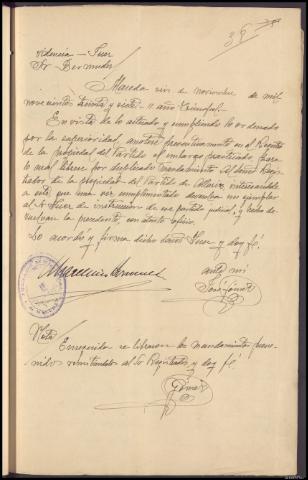 39
videncia = Juez
Sr Bermudez
Alareda seis de Noviembre de mil
novecientos treinta y siete = II año Triunfal =
En vista de lo actuado y cumpliendo lo ordenado
por la superioridad, anotese preventivamente en el Registro
de la propiedad del Partido el embargo practicado para
lo cual librese por duplicado mandamiento al señor Regis-
trador de la propiedad del Partido de interesandole
a este que una vez cumplimentado devuelva un ejemplar
al Sr Juez de instruccion de ese partido judicial, y hecho de-
vuelvase la presente, con atento oficio.
Lo acordó y firma dicho señor Juez y doy fé.
ante mi
José Gómez
Nota
Enseguida se libraron los mandamientos preve-
nidos remitiendolos al Sr Registrador y doy fé.
Gómez